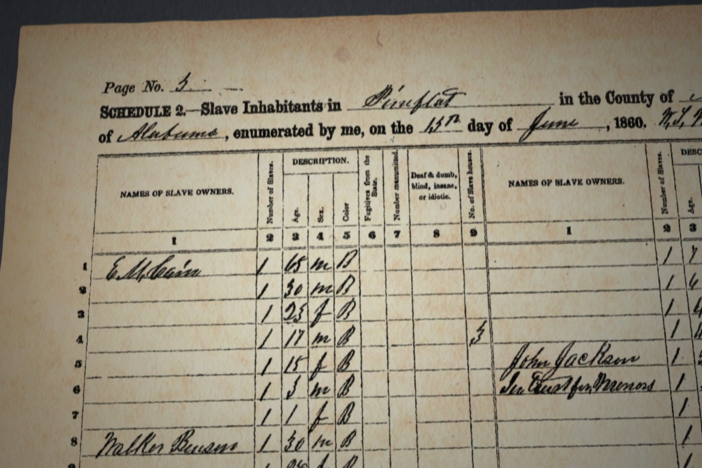 Page No. 3
SCHEDULE 2.—Slave Inhabitants in Pineflat in the County of
of Alabama, enumerated by me, on the 15th day of June, 1860.
NAMES OF SLAVE OWNERS. Number of Slaves. DESCRIPTION. Age. Sex. Color Fugitives from the State. Number manumitted. Deaf & dumb, blind, insane, or idiotic. No. of Slave houses. NAMES OF SLAVE OWNERS. Number of Slaves. DESC Age.
1 2 3 4 5 6 7 8 9 1 2 3
1 E McCain 1 65 m B 1 7
2 1 30 m B 1 6
3 1 25 f B 1 4
4 1 17 m B 3 1 4
5 1 15 f B John Jackson 1
6 1 3 m B In Trust for Minors 1
7 1 1 f B 1
8 Walker Benson 1 30 m B 1